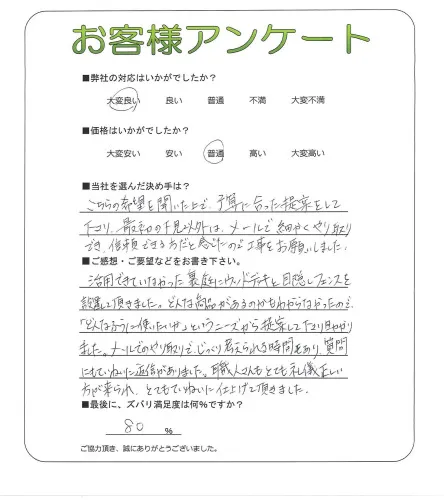 お客様アンケート
■弊社の対応はいかがでしたか？
大変良い 良い 普通 不満 大変不満
■価格はいかがでしたか？
大変安い 安い 普通 高い 大変高い
■当社を選んだ決め手は？
こちらの希望を聞いた上で、予算に合った提案をして
下さり、最初の下見以外は、メールで細やくやり取り
でき、信頼できる方だと感じたので工事をお願いしました。
■ご感想・ご要望などをお書き下さい。
活用できていなかった裏庭にウッドデッキと目隠しフェンスを
設置して頂きました。どんな商品があるのかもわからなかったので、
「どんなふうに使いたいか」というニーズから提案して下さり助かり
ました。メールでのやり取りで、じっくり考えられる時間もあり、質問
にもていねいに返信がありました。職人さんもとても礼儀正しい
方が来られ、とてもていねいに仕上げて頂きました。
■最後に、ズバリ満足度は何％ですか？
80 %
ご協力頂き、誠にありがとうございました。